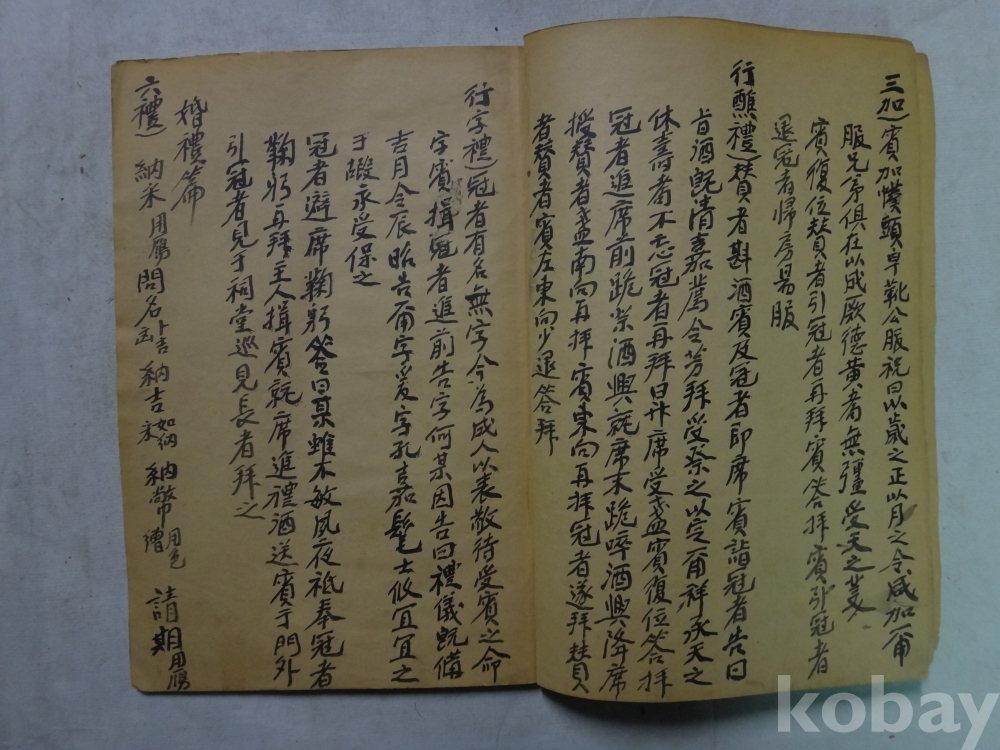 三加 賓加幞頭皁靴公服祝曰以歲之正以月之令咸加爾
服兄弟俱在以成厥德黃耇無彊受天之慶
賓復位贊者引冠者再拜賓答拜賓引冠者
退冠者歸房易服
行醮禮 贊者斟酒賓及冠者即席賓詣冠者告曰
旨酒旣清嘉薦令芳拜受祭之以定爾祥承天之
休壽耇不忘冠者再拜曰升席受盞賓復位答拜
冠者進席前跪祭酒興就席末跪啐酒興降席
授贊者盞南向再拜賓東向再拜冠者遂拜贊
者贊者賓左東向少退答拜
行字禮 冠者有名無字今爲成人以表敬待受賓之命
字賓揖冠者進前告字何某因告曰禮儀旣備
吉月令辰昭告爾字爰字孔嘉髦士攸宜宜之
于嘏永受保之
冠者避席鞠躬答曰某雖不敏夙夜祗奉冠者
鞠躬再拜主人揖賓就席進禮酒送賓于門外
引冠者見于祠堂巡見長者拜之
婚禮篇
六禮 納采用鴈 問名 納吉如納采 納幣用色繒 請期用鴈